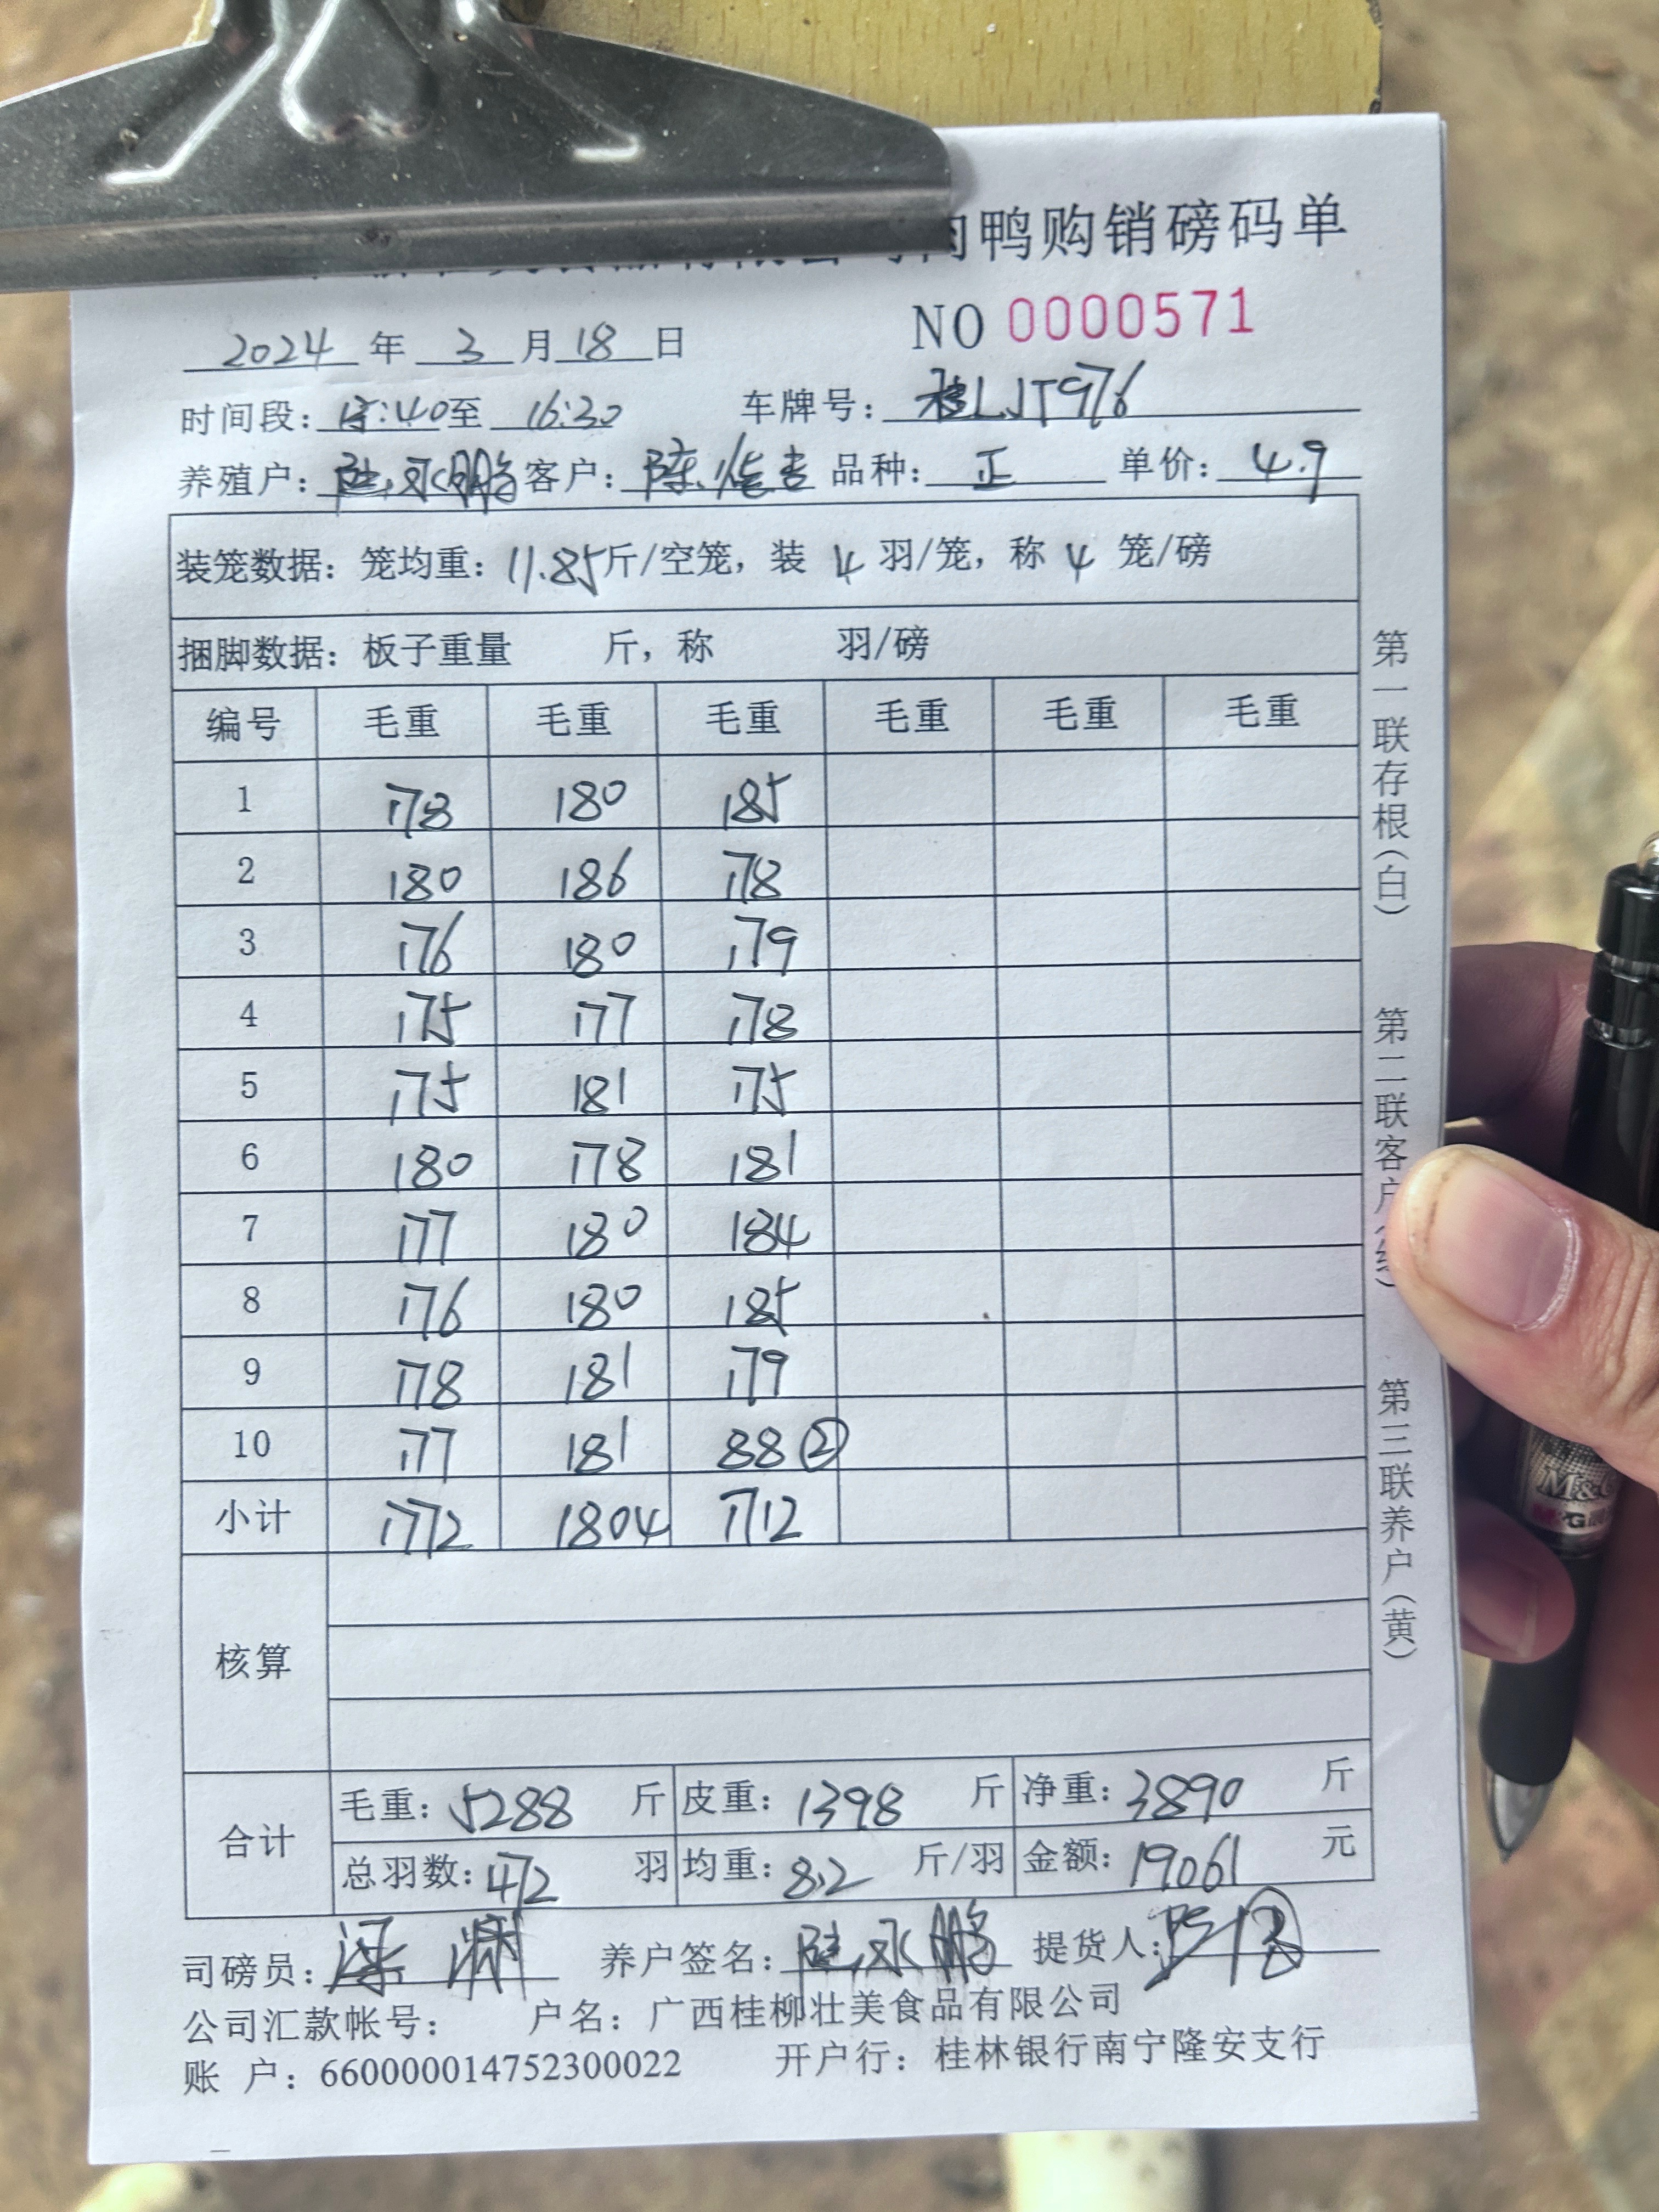 肉鸭购销磅码单
NO 0000571
2024 年 3 月 18 日
时间段: 15:40 至 16:30 车牌号: 桂LJT976
养殖户: 陆永鹏 客户: 陈 品种: 正 单价: 4.9
装笼数据: 笼均重: 11.85 斤/空笼, 装 4 羽/笼, 称 4 笼/磅
捆脚数据: 板子重量 斤, 称 羽/磅
编号 毛重 毛重 毛重 毛重 毛重 毛重
1 178 180 185
2 180 186 178
3 176 180 179
4 175 177 178
5 175 181 175
6 180 178 181
7 177 180 184
8 176 180 185
9 178 181 179
10 177 181 88②
小计 1772 1804 1712
核算
合计
毛重: 5288 斤 皮重: 1398 斤 净重: 3890 斤
总羽数: 472 羽 均重: 8.2 斤/羽 金额: 19061 元
司磅员: 养户签名: 陆永鹏 提货人:
公司汇款帐号: 户名: 广西桂柳壮美食品有限公司
账 户: 660000014752300022 开户行: 桂林银行南宁隆安支行
第一联存根(白)
第二联客户
第三联养户(黄)
M&G